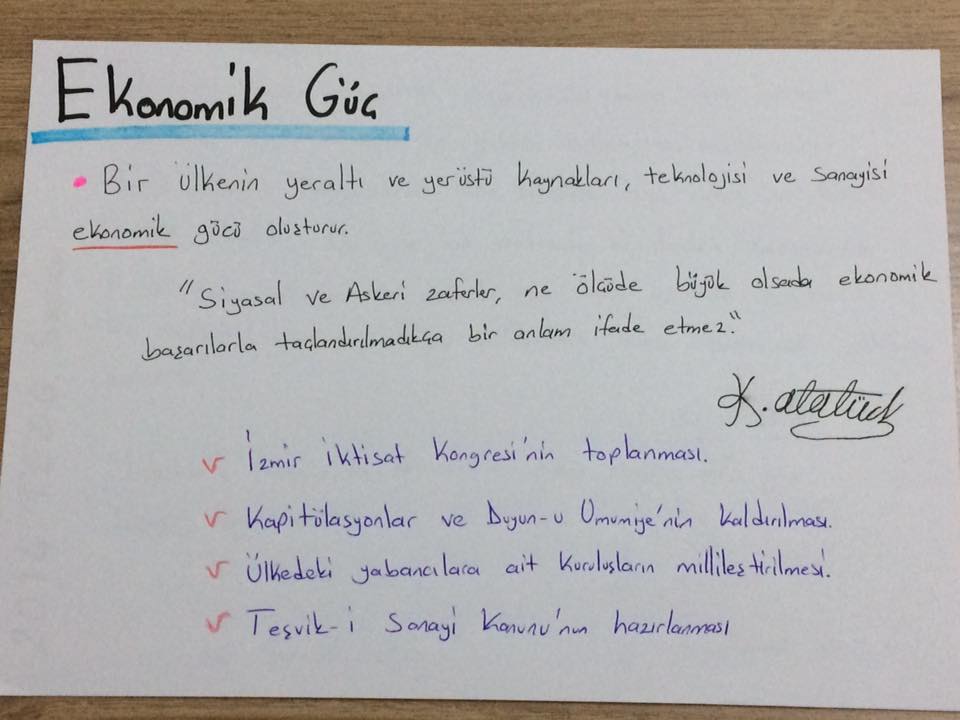 Ekonomik Güç
• Bir ülkenin yeraltı ve yerüstü kaynakları, teknolojisi ve sanayisi
ekonomik gücü oluşturur.
"Siyasal ve Askeri zaferler, ne ölçüde büyük olsada ekonomik
başarılarla taçlandırılmadıkça bir anlam ifade etmez."
K. Atatürk
✓ İzmir iktisat Kongresi'nin toplanması.
✓ Kapitülasyonlar ve Duyun-u Umumiye'nin kaldırılması.
✓ Ülkedeki yabancılara ait kuruluşların millileştirilmesi.
✓ Teşvik-i Sanayi Kanunu'nun hazırlanması